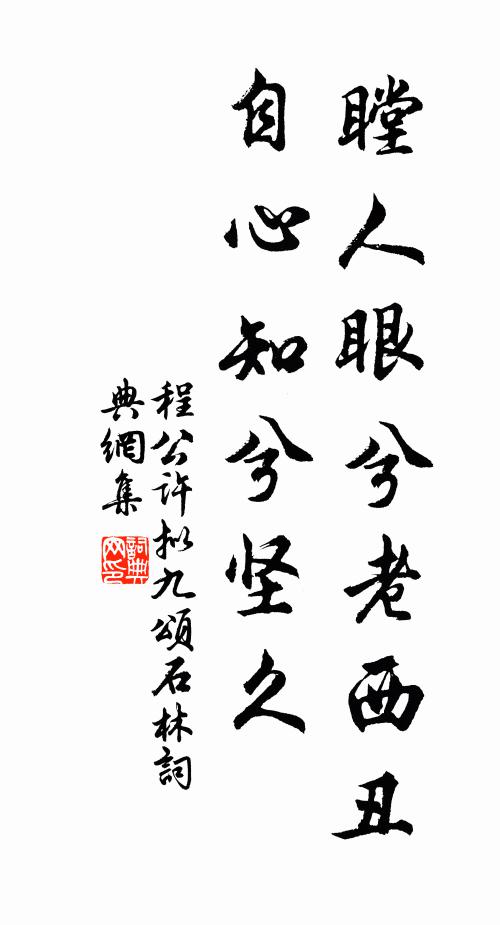 瞠人眼兮老西丑
自心知兮坚久
程公许拟九頌石林詞
典網集
詞典網印